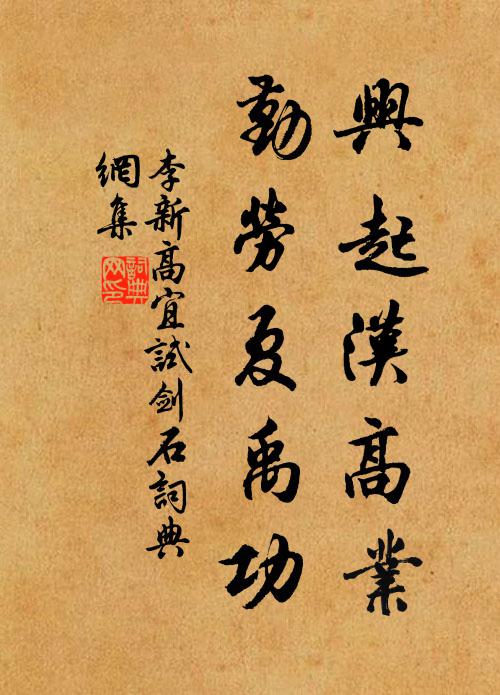 興起漢高業
勤勞夏禹功
李新高宜試劍石詞典
網集
詞典網印